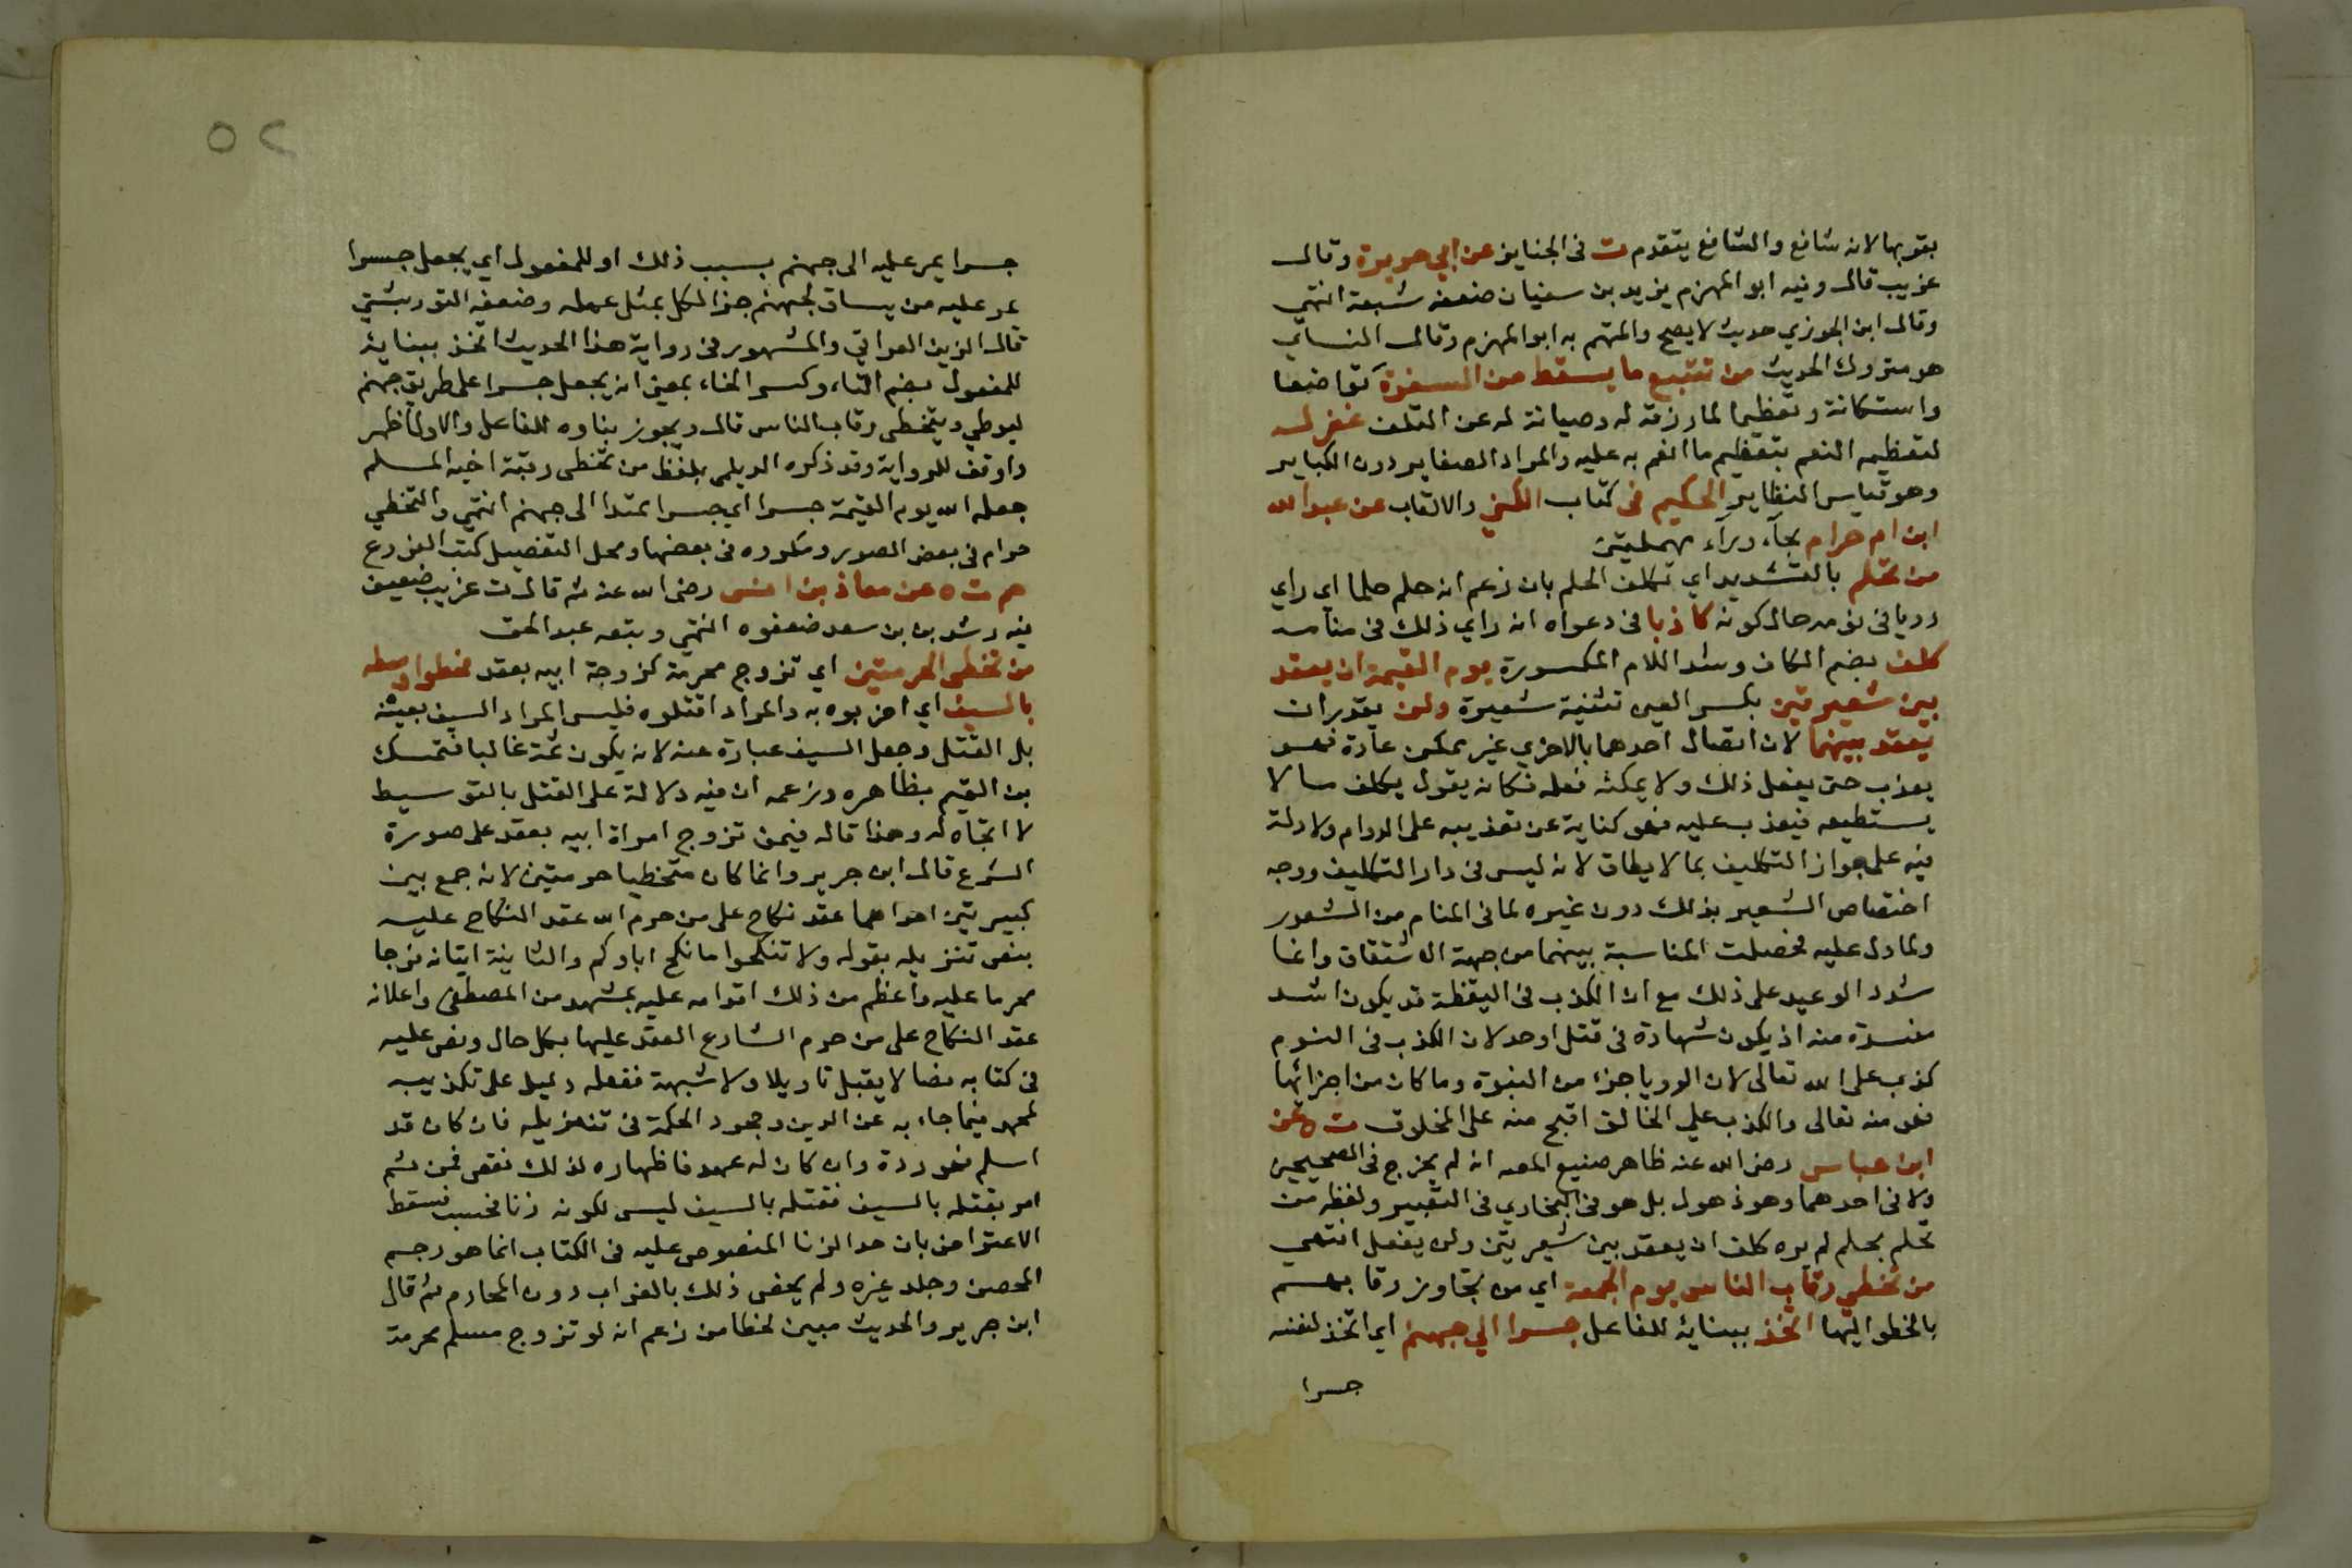 بقوبها لانه شافع والشافع يتقدم ت فى الجنايز عن ابي هريرة وقال
غريب قال وفيه ابو المهزم يزيد بن سفيان ضعفه شعبة انتهي
وقال ابن الجوزي حديث لا يصح والمتهم به ابو المهزم وقال النساي
هو متروك الحديث من تتبع ما يسقط من السفرة تواضعا
واستكانة وتعظيما لما رزقه له وصيانة له عن التلف غفر له
لتعظيمه النعم بتعظيم ما انعم به عليه والمراد الصغاير دون الكباير
وهو قياس النظاير الحكيم فى كتاب الكني والالقاب عن عبد الله
ابن ام حرام بحآء ورآء مهملتين
من تحلم بالتشديد اي تكلف الحلم بان زعم انه حلم حلما اي راي
رويا فى نومه حال كونه كاذبا فى دعواه انه راي ذلك فى منامه
كلف بضم الكاف وشد اللام المكسورة يوم القيمة ان يعقد
بين شعيرتين بكسر العين تثنية شعيرة ولن يقدر ان
يعقد بينهما لان اتصال احدهما بالاخري غير ممكن عادة فهو
يعذب حتى يفعل ذلك ولا يمكنه فعله فكانه يقول يكلف ما لا
يستطيعه فيعذب عليه فهو كناية عن تعذيبه على الدوام ولا دلة
فيه على جواز التكليف بما لا يطاق لانه ليس فى دار التكليف ووجه
اختصاص الشعير بذلك دون غيره لما فى المنام من الشعور
ولما دل عليه فحصلت المناسبة بينهما من جهة الاشتقاق وانما
شدد الوعيد على ذلك مع ان الكذب فى اليقظة قد يكون اشد
مفسدة منه اذ يكون شهادة فى قتل او حد لان الكذب فى النوم
كذب على الله تعالى لان الرويا جزء من النبوة وما كان من اجزائها
فهو منه تعالى والكذب على الخالق اقبح منه على المخلوق ت ه عن
ابن عباس رضى الله عنه ظاهر صنيع المصه انه لم يخرج فى الصحيحين
ولا فى احدهما وهو ذهول بل هو فى البخاري فى التعبير ولفظه من
تحلم بحلم لم يره كلف ان يعقد بين شعيرتين ولن يفعل انتهي
من تخطي رقاب الناس يوم الجمعة اي من تجاوز رقابهم
بالخطو اليها اتخذ ببنايه للفاعل جسرا الي جهنم اي اتخذ لنفسه
جسرا
٥٢
جسرا يمر عليه الى جهنم بسبب ذلك او للمفعول اي يجعل جسرا
يمر عليه من يساق لجهنم جزا لكل بمثل عمله وضعفه التوربشتي
قال الزين العراقي والمشهور فى رواية هذا الحديث اتخذ ببنايه
للمفعول بضم التاء وكسر الخاء بمعنى انه يجعل جسرا على طريق جهنم
ليوطي ويتخطى رقاب الناس قال ويجوز بناوه للفاعل والاول اظهر
واوفق للرواية وقد ذكره الديلمي بلفظ من تخطى رقبة اخيه المسلم
جعله الله يوم القيمة جسرا اي جسرا يمتدا الى جهنم انتهي والتخطي
حرام فى بعض الصور ومكروه فى بعضها ومحل التفصيل كتب الفروع
حم ت ه عن معاذ بن انس رضى الله عنه ثم قال ت غريب ضعيف
فيه رشدين بن سعد ضعفوه انتهي وتبعه عبد الحق
من تخطى الحرمتين اي تزوج محرمة كزوجة ابيه بعقد فخطوا وسطه
بالسيف اي اضربوه به والمراد اقتلوه فليس المراد السيف بعينه
بل القتل وجعل السيف عبارة عنه لانه يكون ثمة غالبا فتمسك
بن القيم بظاهره وزعمه ان فيه دلالة على القتل بالتوسيط
لا اتجاه له وهذا قاله فيمن تزوج امراة ابيه بعقد على صورة
الشرع قال ابن جرير وانما كان متخطيا حرمتين لانه جمع بين
كبيرتين احداهما عقد نكاح على من حرم الله عقد النكاح عليه
بنص تنزيله بقوله ولا تنكحوا ما نكح اباوكم والثانية اتيانه فرجا
محرما عليه واعظم من ذلك اقدامه عليه بمشهد من المصطفى واعلانه
عقد النكاح على من حرم الشارع العقد عليها بكل حال ونص عليه
فى كتابه نصا لا يقبل تاويلا ولا شبهة ففعله دليل على تكذيبه
لمحمد فيما جاء به عن الدين وجحود الحكمة فى تنزيله فان كان قد
اسلم فهو ردة وان كان له عهد فاظهاره لذلك نقض فمن ثم
امر بقتله بالسيف فقتله بالسيف ليس لكونه زنا فحسب فسقط
الاعتراض بان حد الزنا المنصوص عليه فى الكتاب انما هو رجم
المحصن وجلد غيره ولم يخص ذلك بالغراب دون المحارم ثم قال
ابن جرير والحديث مبين لخطا من زعم انه لو تزوج مسلم محرمة